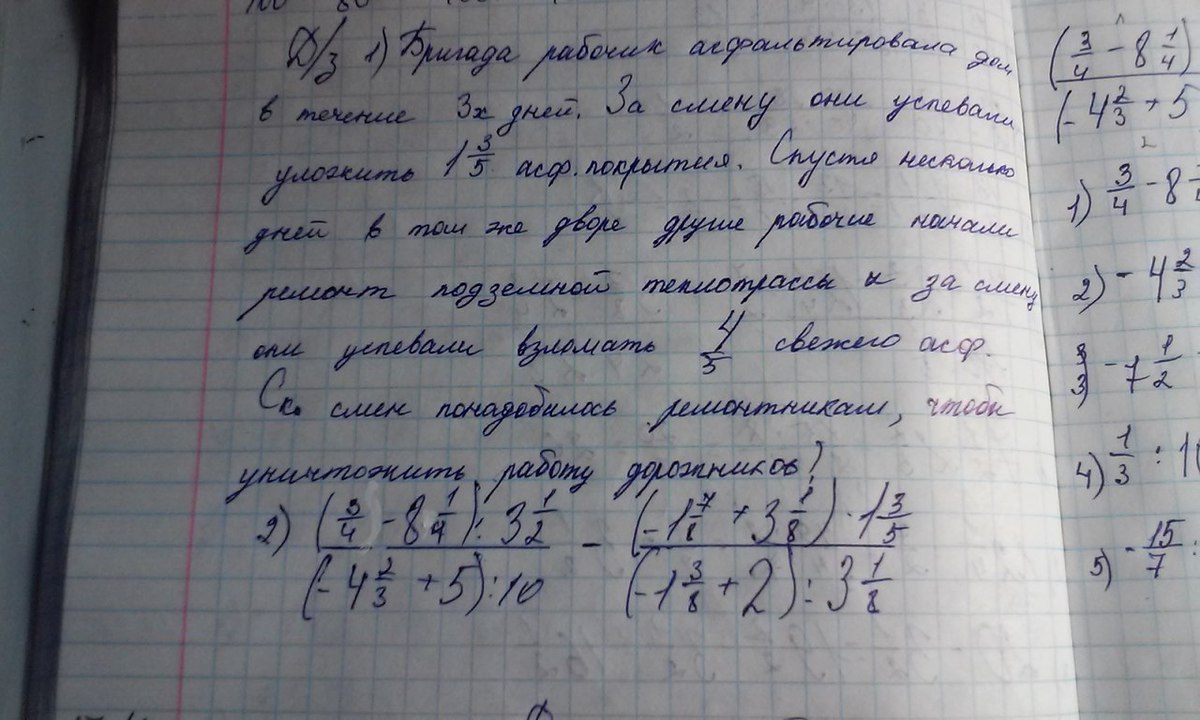 Д/з 1) Бригада рабочих асфальтировала дом
в течение 3х дней. За смену они успевали
уложить 1 3/5 асф. покрытия. Спустя несколько
дней в том же дворе другие рабочие начали
ремонт подземной теплотрассы и за смену
они успевали взломать 4/5 свежего асф.
Ск. смен понадобилось ремонтникам, чтобы
уничтожить работу дорожников?
2) ((3/4 - 8 1/4) : 3 1/2) / ((-4 2/3 + 5) : 10) - ((-1 7/8 + 3 1/8) · 1 3/5) / ((-1 3/8 + 2) : 3 1/8)
(3/4 - 8 1/4)
(-4 2/3 + 5
1) 3/4 - 8
2) - 4 2/3
3) - 7 1/2
4) 1/3 : 10
5) - 15/7 :